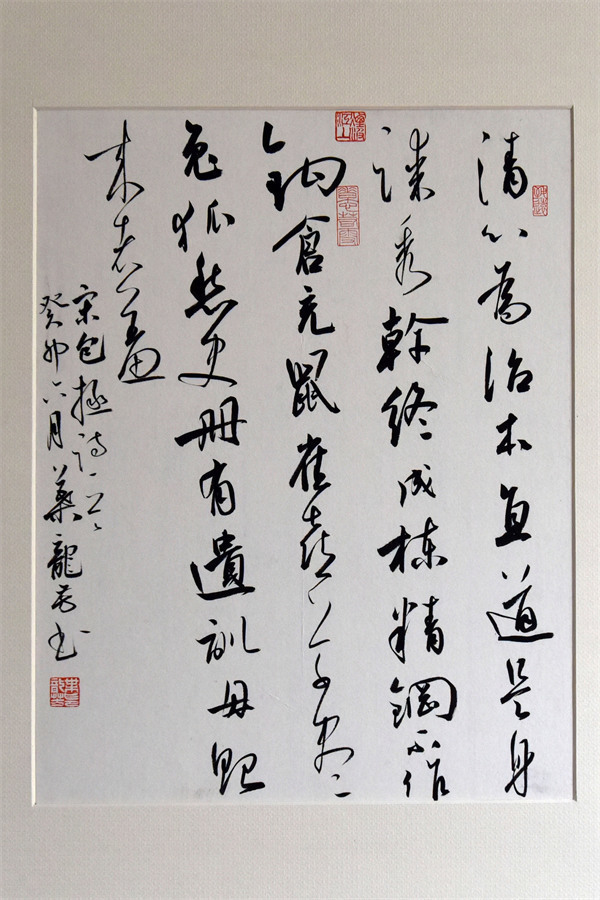 清心為治本直道是身
謀秀幹終成棟精鋼不作
鈎倉充鼠雀喜草尽
兔狐愁史冊有遺訓毋貽
来者羞
宋包拯詩一首
癸卯六月龍书